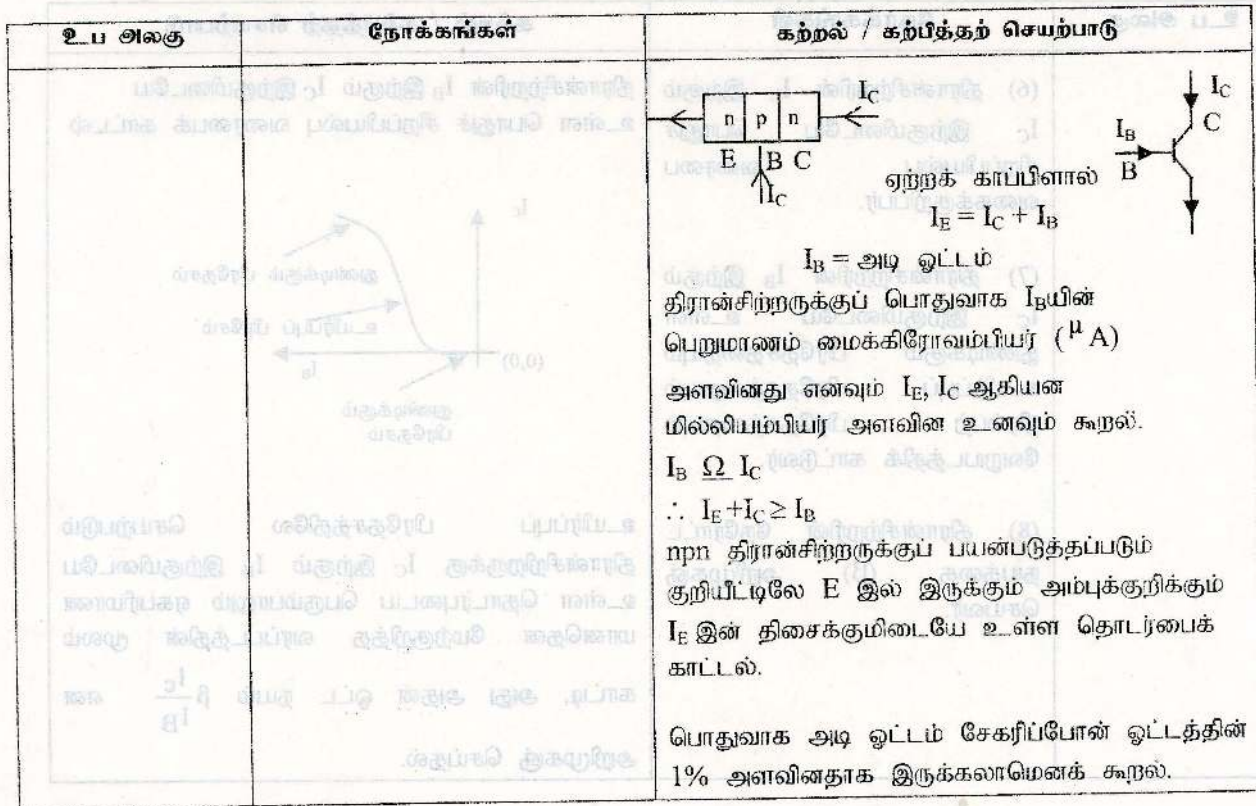 உப அலகு
நோக்கங்கள்
கற்றல் / கற்பித்தற் செயற்பாடு
n p n
I_C
E B C
I_C
I_C
I_B
C
B
ஏற்றக் காப்பினால்
I_E = I_C + I_B
I_B = அடி ஓட்டம்
திரான்சிற்றருக்குப் பொதுவாக I_Bயின்
பெறுமாணம் மைக்கிரோவம்பியர் (μ A)
அளவினது எனவும் I_E, I_C ஆகியன
மில்லியம்பியர் அளவின உனவும் கூறல்.
I_B Ω I_C
∴ I_E +I_C ≥ I_B
npn திரான்சிற்றருக்குப் பயன்படுத்தப்படும்
குறியீட்டிலே E இல் இருக்கும் அம்புக்குறிக்கும்
I_E இன் திசைக்குமிடையே உள்ள தொடர்பைக்
காட்டல்.
பொதுவாக அடி ஓட்டம் சேகரிப்போன் ஓட்டத்தின்
1% அளவினதாக இருக்கலாமெனக் கூறல்.